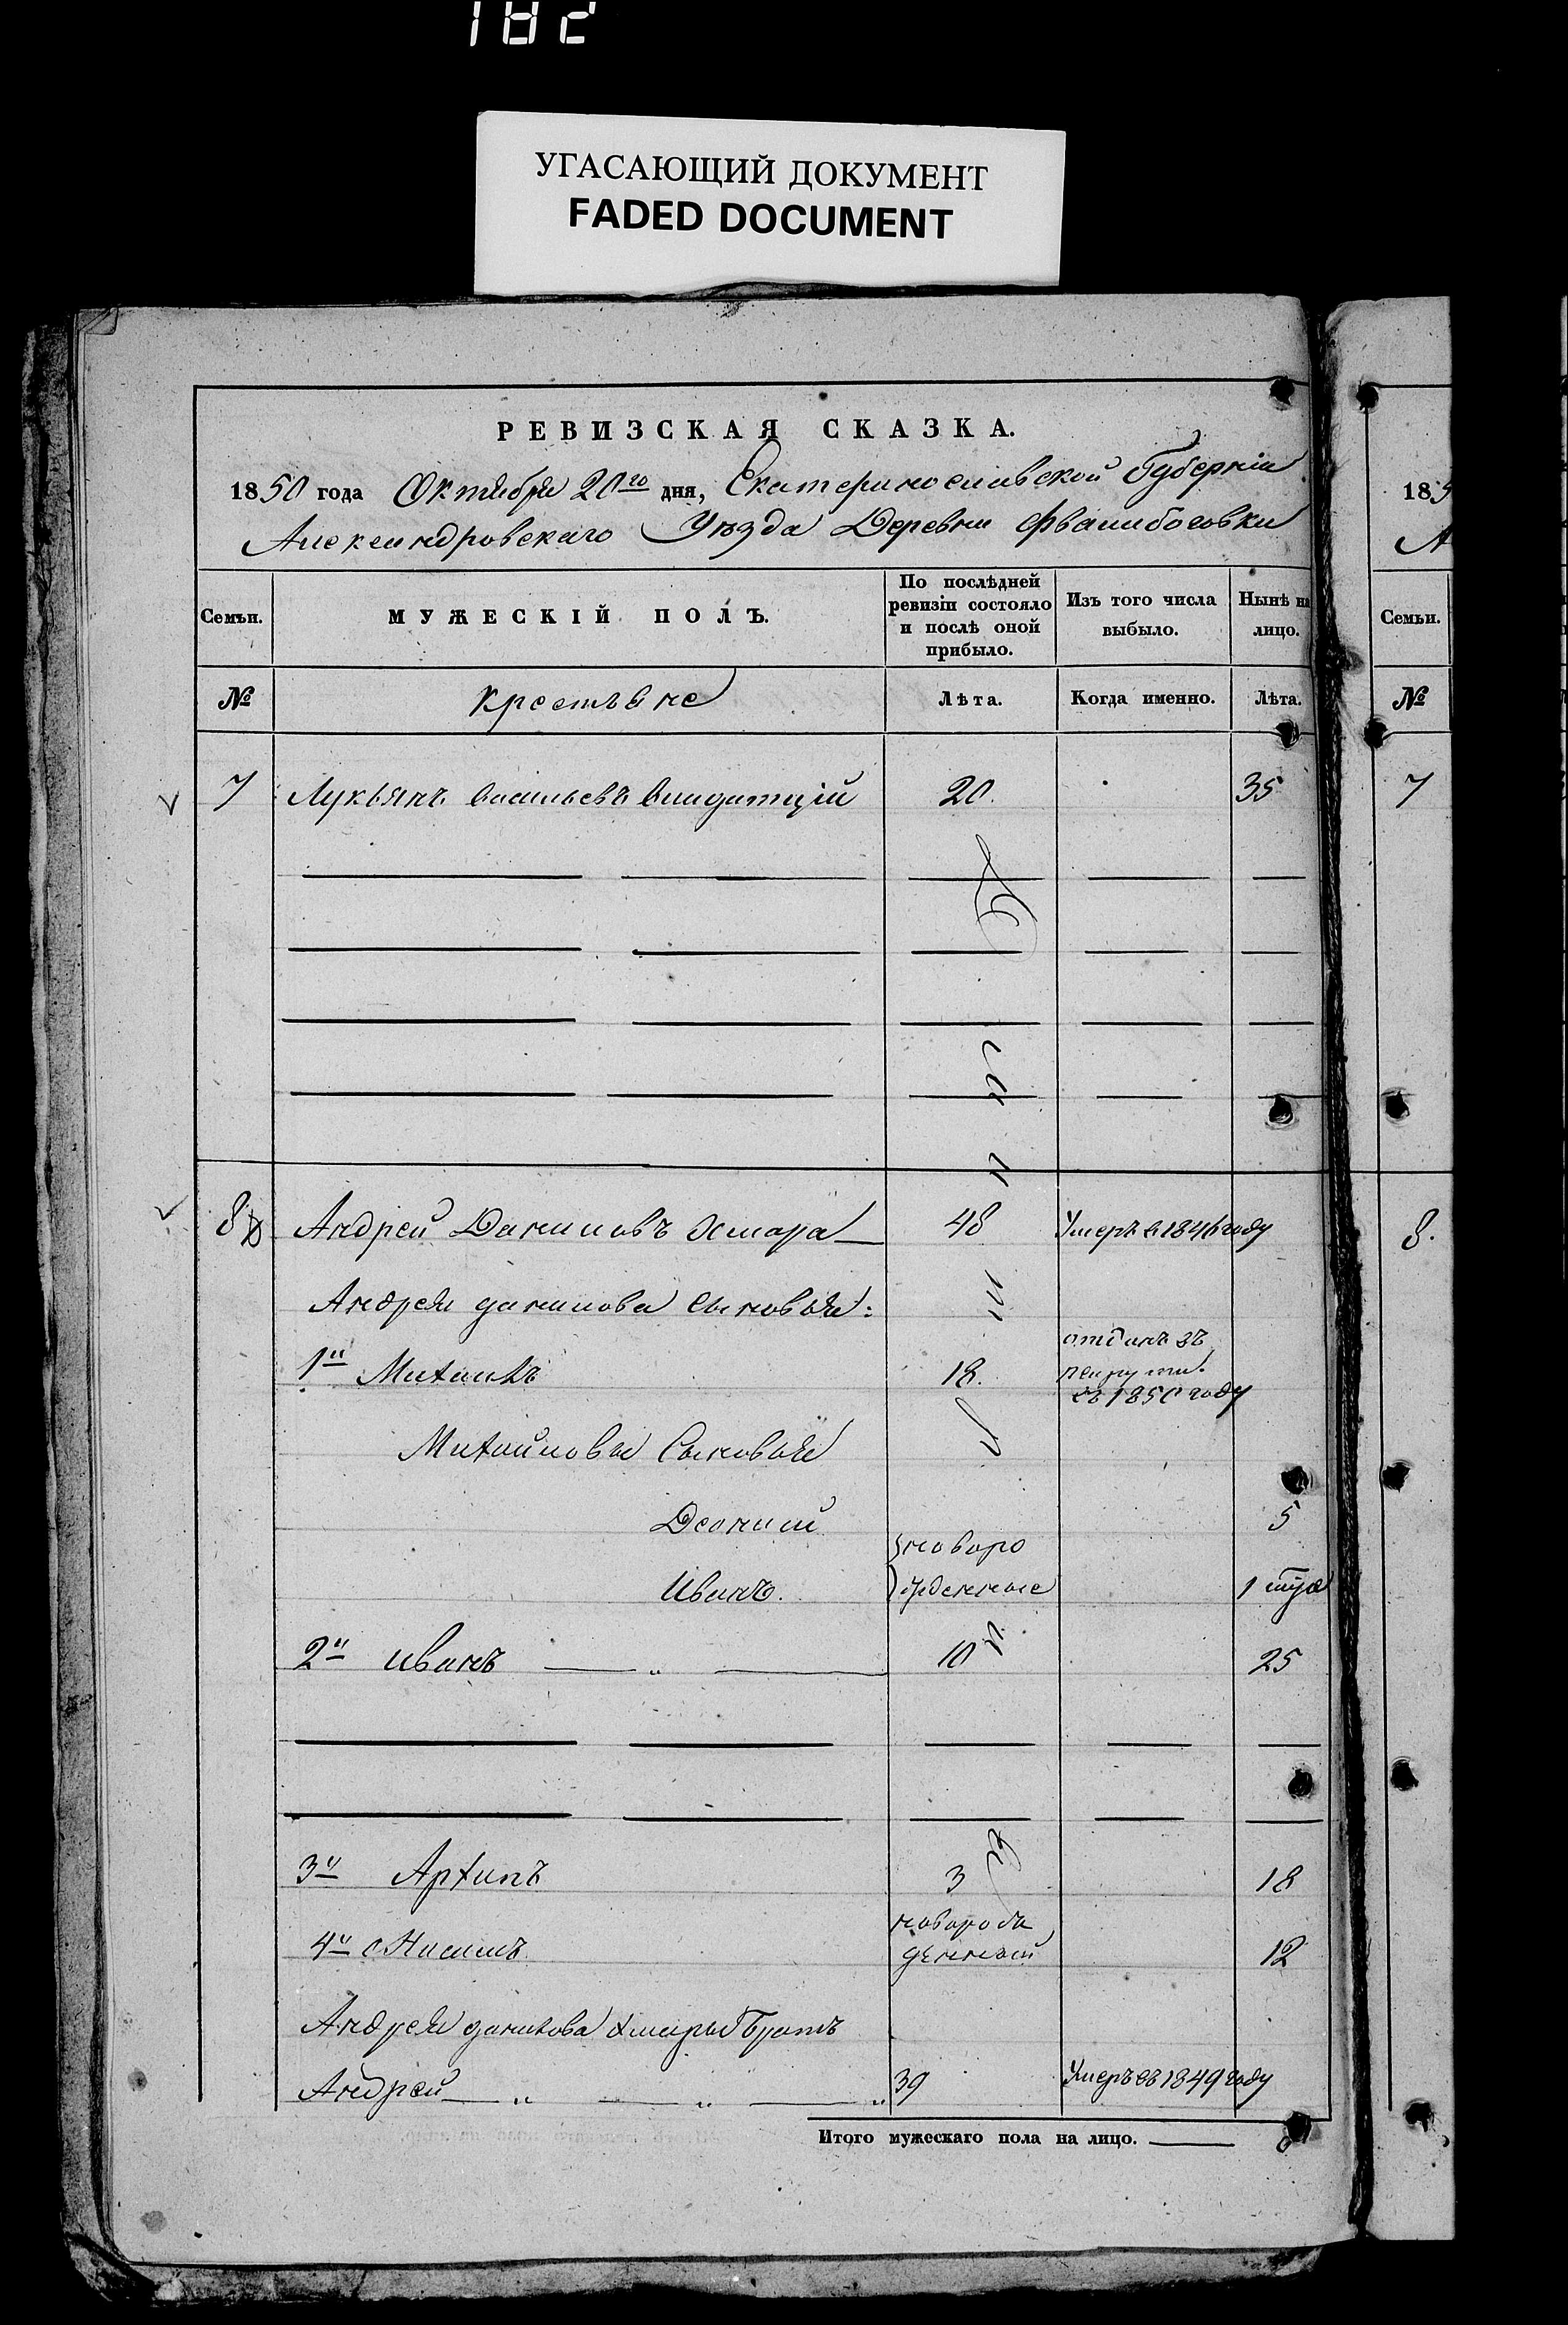 182
УГАСАЮЩИЙ ДОКУМЕНТ
FADED DOCUMENT
РЕВИЗСКАЯ СКАЗКА.
1850 года Октября 20го дня, Екатеринославской Губерніи
Александровскаго Уѣзда Деревни
Семьи.
МУЖЕСКІЙ ПОЛЪ.
По послѣдней ревизіи состояло и послѣ оной прибыло.
Изъ того числа выбыло.
Нынѣ на лицо.
№
крестьяне
Лѣта.
Когда именно.
Лѣта.
7 Лукьянъ васильевъ 20. 35
8 Андрей Даниловъ Хмара 48 Умеръ в 1846 году
Андрея данилова сыновья:
1й Михаилъ 18. отданъ въ рекруты. въ 1850 году
Михайловы Сыновья
5
Иванъ. новорожденные 1
2й иванъ 10 25
3й Архипъ 3 18
4й новорожденный 12
Андрея данилова хмары Братъ
Андрей 39 Умеръ въ 1849 году
Итого мужескаго пола на лицо.
185
А
Семьи.
№
7
8.